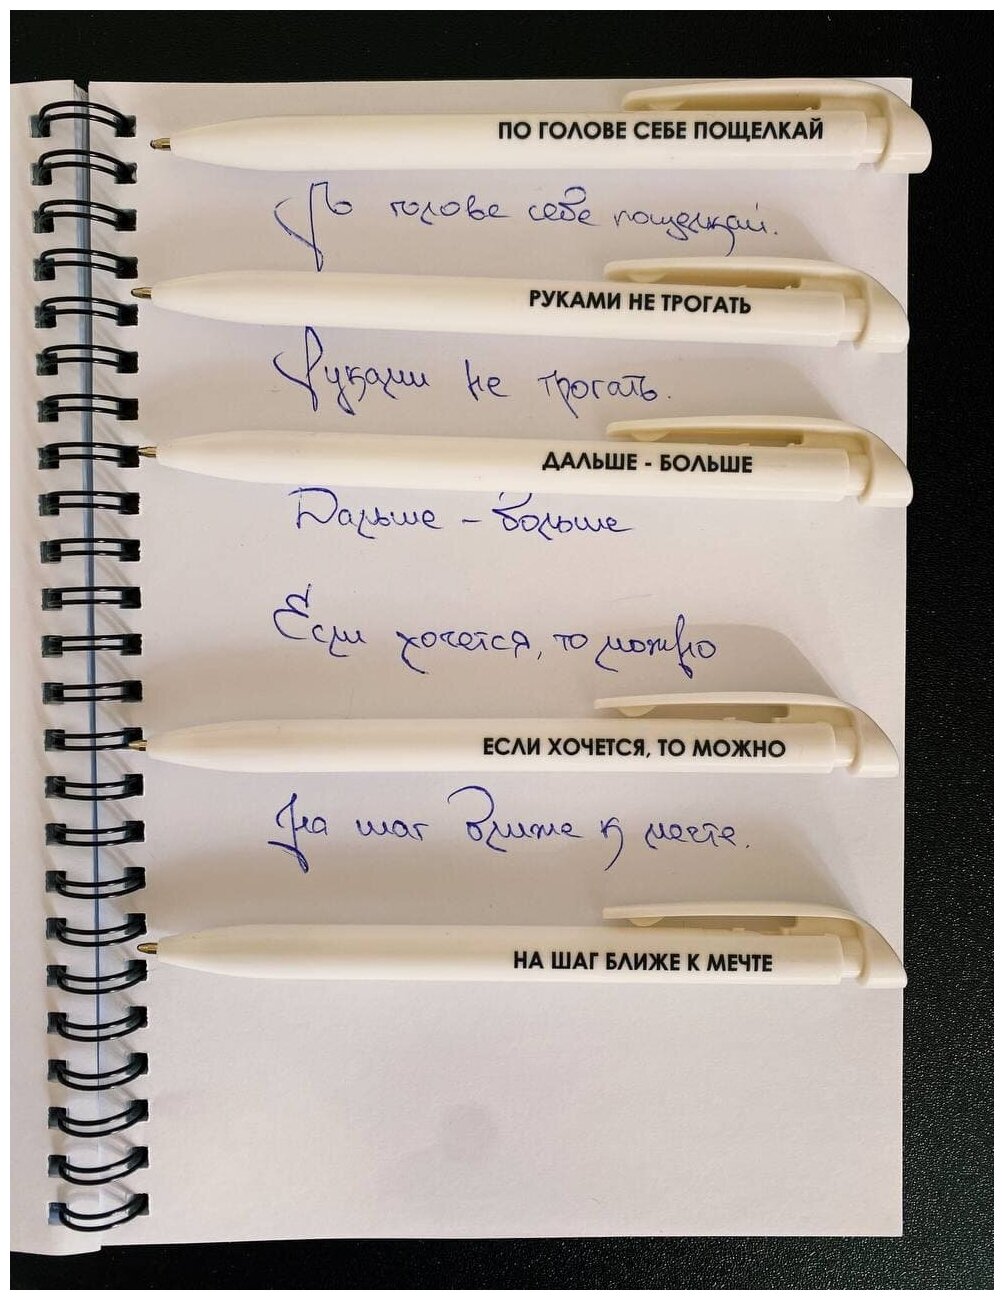 ПО ГОЛОВЕ СЕБЕ ПОЩЕЛКАЙ
По голове себе пощелкай.
РУКАМИ НЕ ТРОГАТЬ
Руками не трогать.
ДАЛЬШЕ - БОЛЬШЕ
Дальше - больше
Если хочется, то можно
ЕСЛИ ХОЧЕТСЯ, ТО МОЖНО
На шаг ближе к мечте.
НА ШАГ БЛИЖЕ К МЕЧТЕ